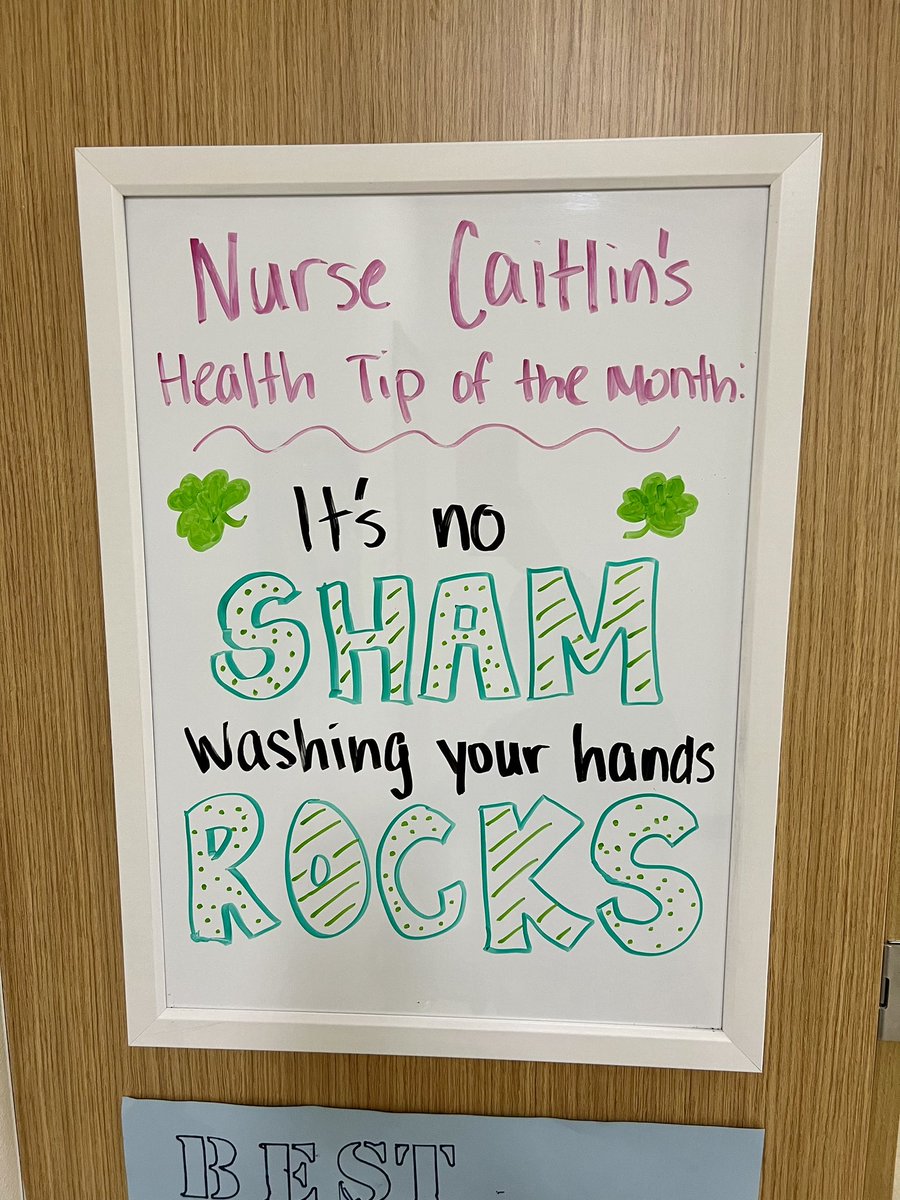 Nurse Caitlin's
Health Tip of the Month:
It's no
SHAM
Washing your hands
ROCKS
BEST